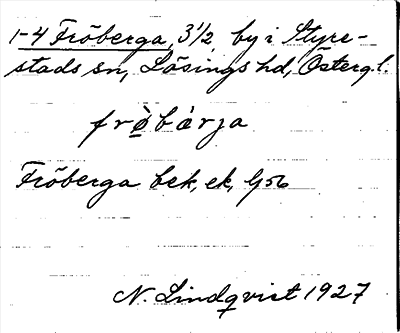 1-4 Fröberga, 3½, by i Styre-
stads sn, Lösings hd, Österg.l.
frö̀bárja
Fröberga bek, ek, G56
N. Lindqvist 1927